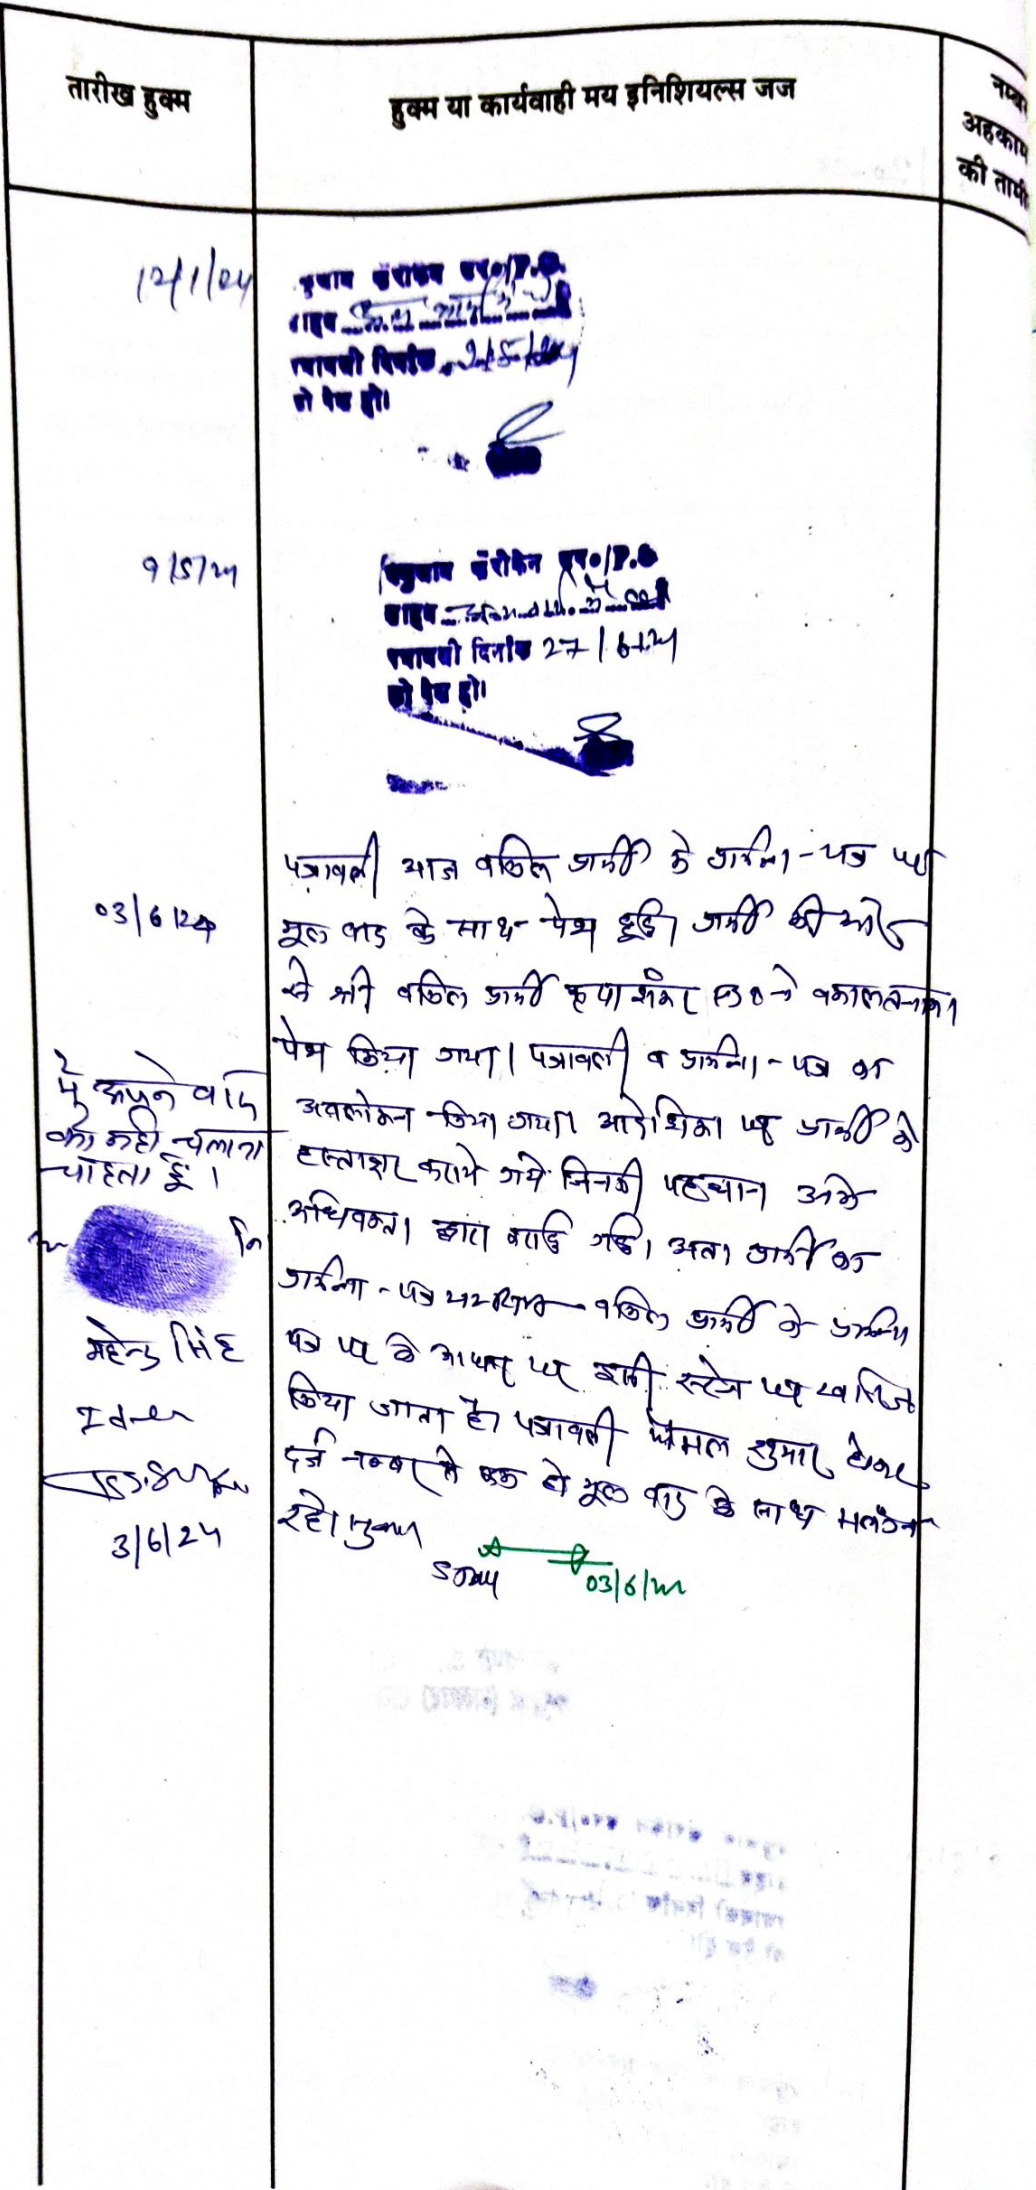 तारीख हुक्म
हुक्म या कार्यवाही मय इनिशियल्स जज
नम्बर
अहकाम
की तामी
12/1/24
P.O.
साहब
पत्रावली दिनांक 9/5/24
को पेश हो।
9/5/24
P.O
साहब
पत्रावली दिनांक 27/6/24
को पेश हो।
03/6/24
पत्रावली आज वकिल प्रार्थी के प्रार्थना-पत्र पर
मूल वाद के साथ पेश हुई। प्रार्थी की ओर
से श्री वकिल प्रार्थी कृपा शंकर ने वकालतनामा
पेश किया गया। पत्रावली व प्रार्थना-पत्र का
अवलोकन किया गया। आदेशिका पर प्रार्थी के
हस्ताक्षर कराये गये जिनकी पहचान उनके
अधिवक्ता द्वारा कराई गई। अतः प्रार्थी का
प्रार्थना-पत्र वकिल प्रार्थी के प्रार्थना
पत्र पर के आधार पर इसी स्टेज पर खारिज
किया जाता है। पत्रावली फैसल शुमार होकर
दर्ज नम्बर से कम हो मूल वाद के साथ संलग्न
रहे।
03/6/24
मैं अपने वाद
को नही चलाना
चाहता हूँ।
नि
महेन्द्र सिंह
Iden
3/6/24